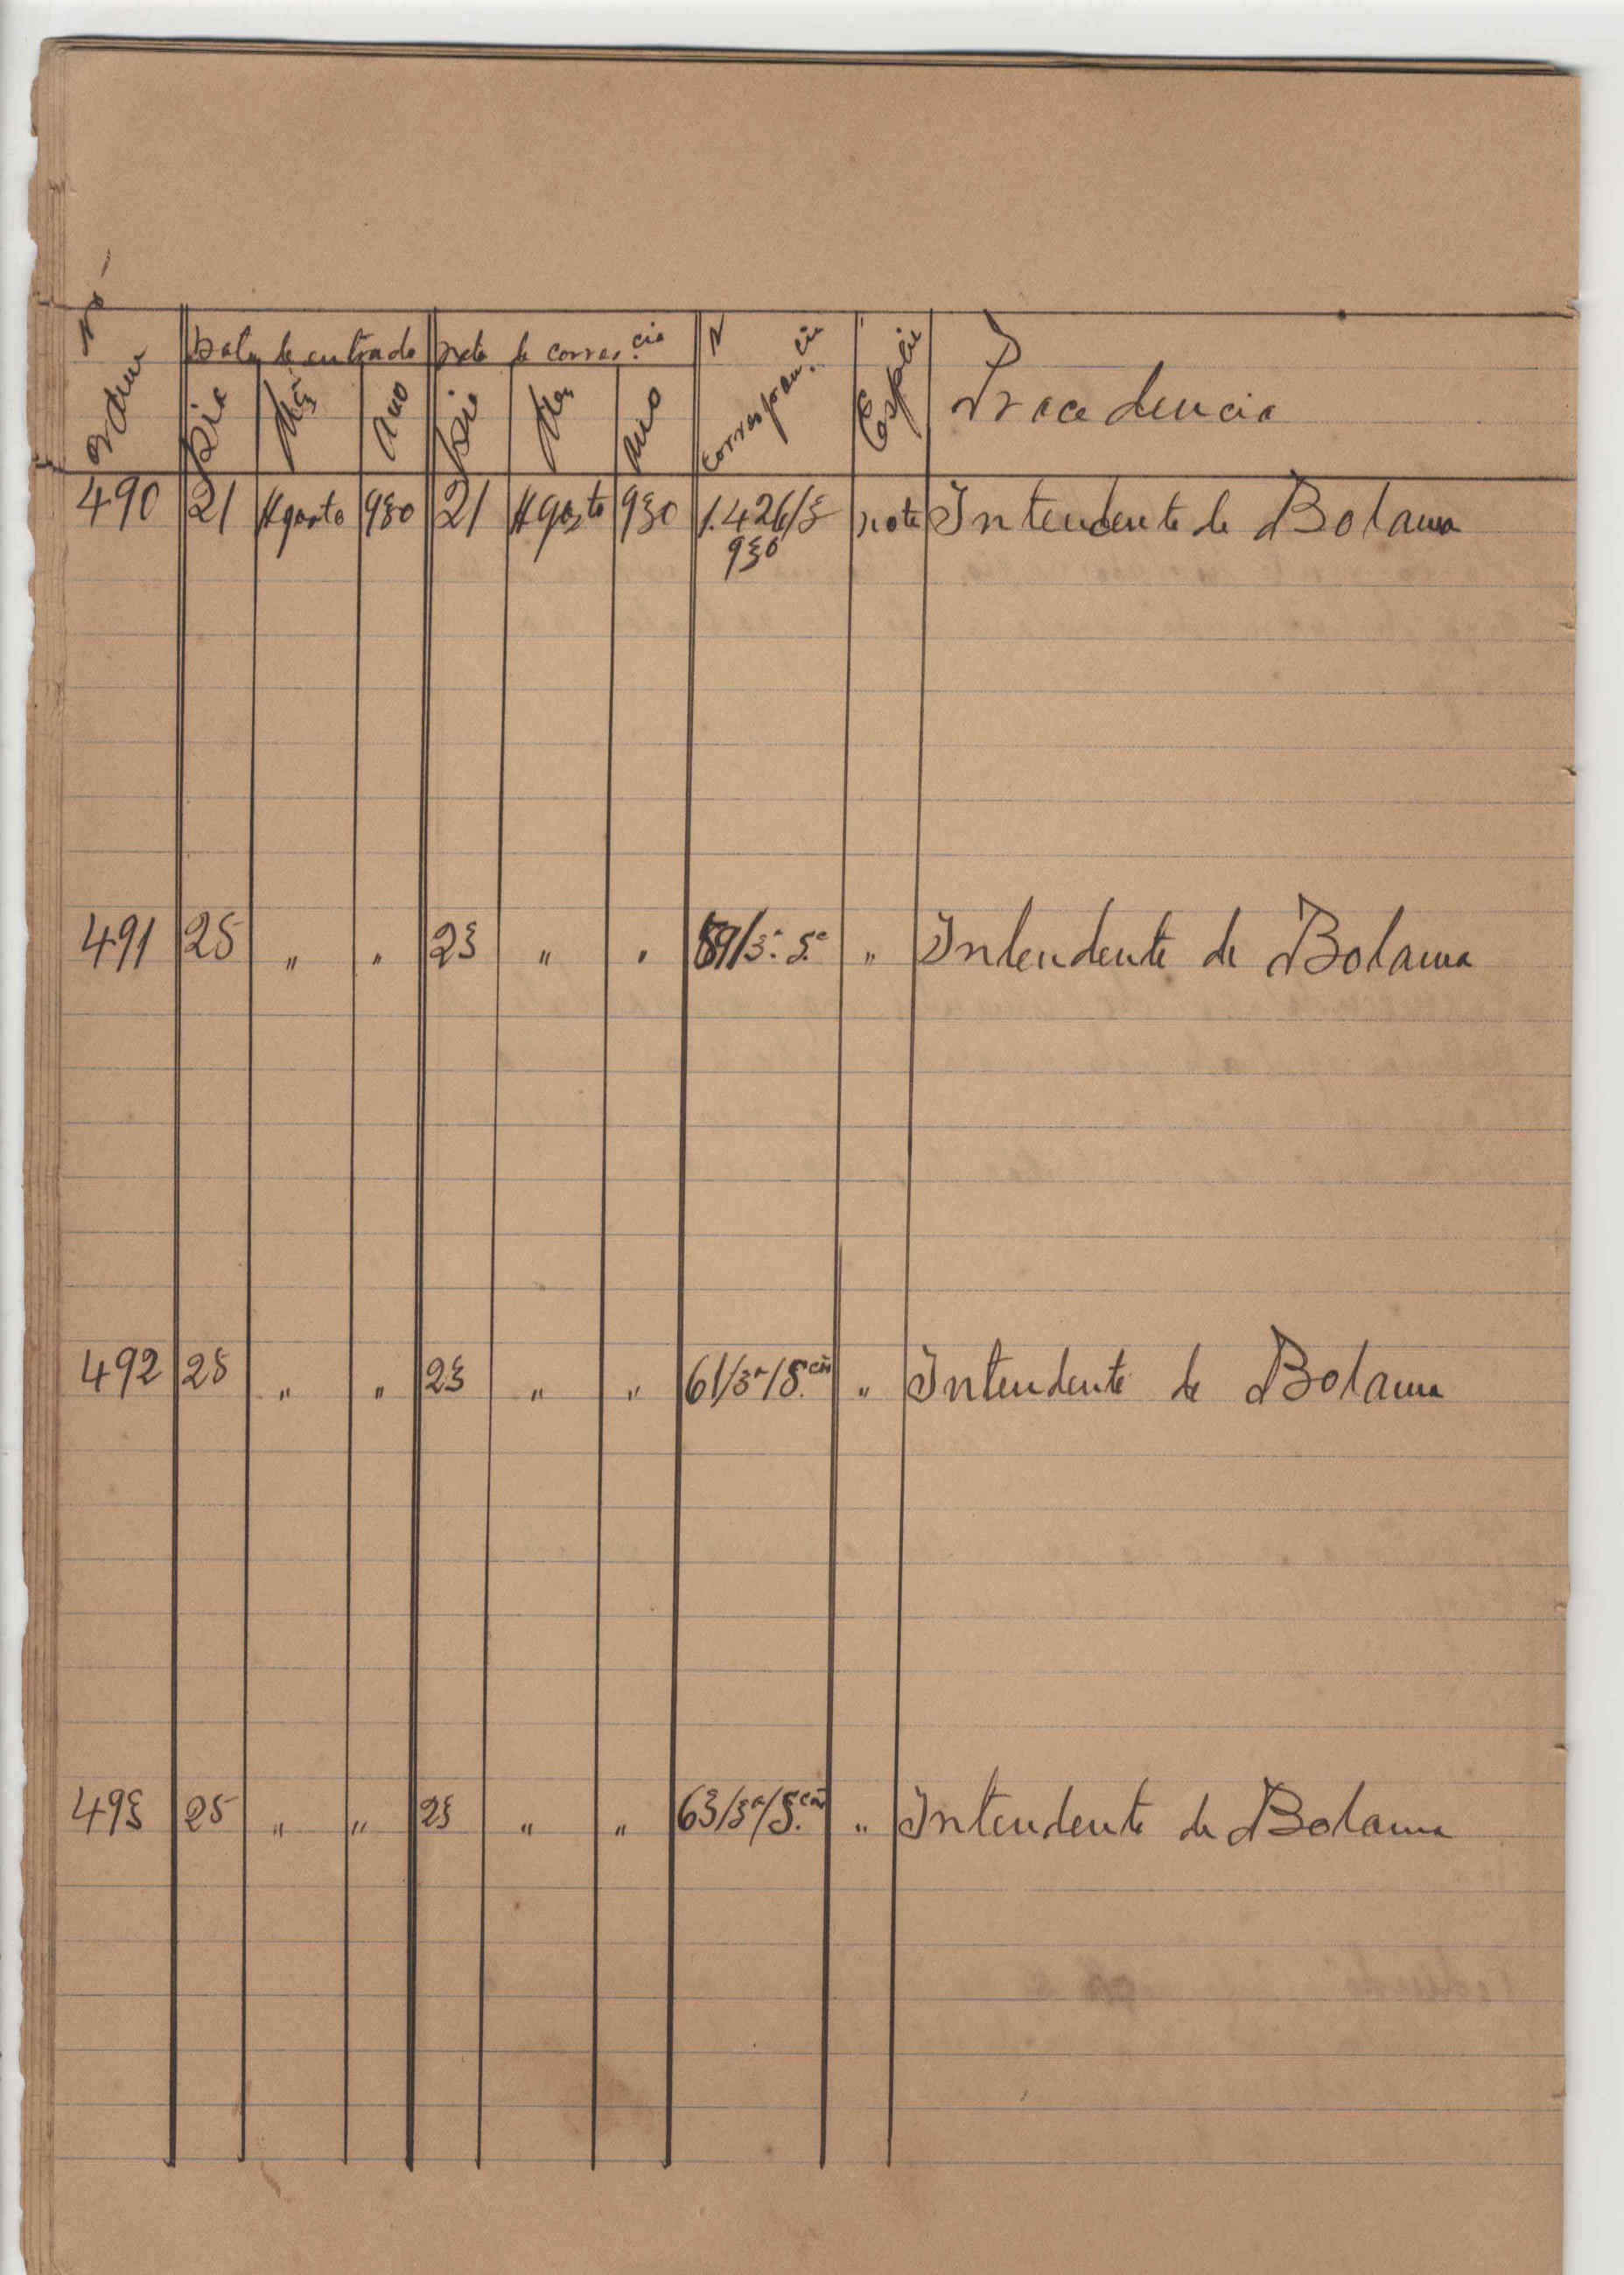 Nº ordem
Data de entrada Data de corres.cia Nº correspon.cia Especie Procedencia
Dia Mês Ano Dia Mês Ano
490 21 Agosto 930 21 Agosto 930 1.426/3 nota Intendente de Bolama
930
491 25 " " 23 " " 59/3ª S.e " Intendente de Bolama
492 25 " " 23 " " 61/3ª/S.cão " Intendente de Bolama
493 25 " " 23 " " 63/3ª/S.cão " Intendente de Bolama